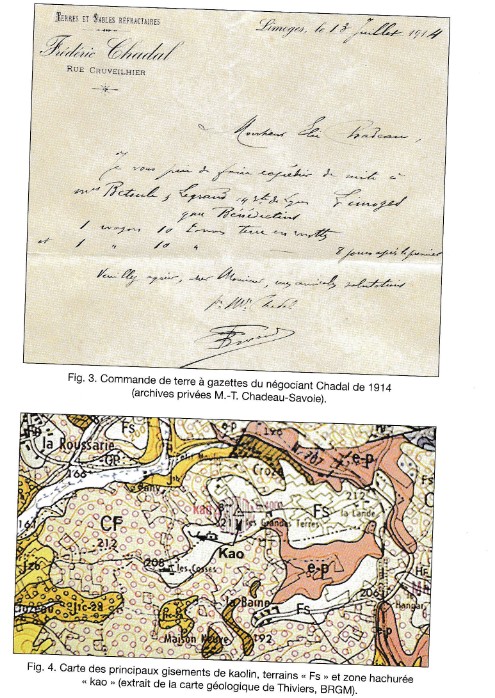 TERRES ET SABLES RÉFRACTAIRES
Frédéric Chadal
RUE CRUVEILHIER
Limoges, le 13 Juillet 1914
Monsieur Elie Chadeau,
Je vous prie de faire expédier de suite à
Legrand Limoges
gare Bénédictins
1 wagon 10 tonnes terre en mottes
et 1 " 10 " 8 jours après le premier
Veuillez agréer, Monsieur, mes amicales salutations
Fig. 3. Commande de terre à gazettes du négociant Chadal de 1914
(archives privées M.-T. Chadeau-Savoie).
la Roussarie
GP
168
190
N.707
e-p
Croze
Fs
212
la Lande
161
CF
212
kao
211
les Grandes Terres
Kao
208
les Cosses
e-p
206
Hangar
Fs
la Baine
J1c-2a
Maison Neuve
192
Fig. 4. Carte des principaux gisements de kaolin, terrains « Fs » et zone hachurée
« kao » (extrait de la carte géologique de Thiviers, BRGM).